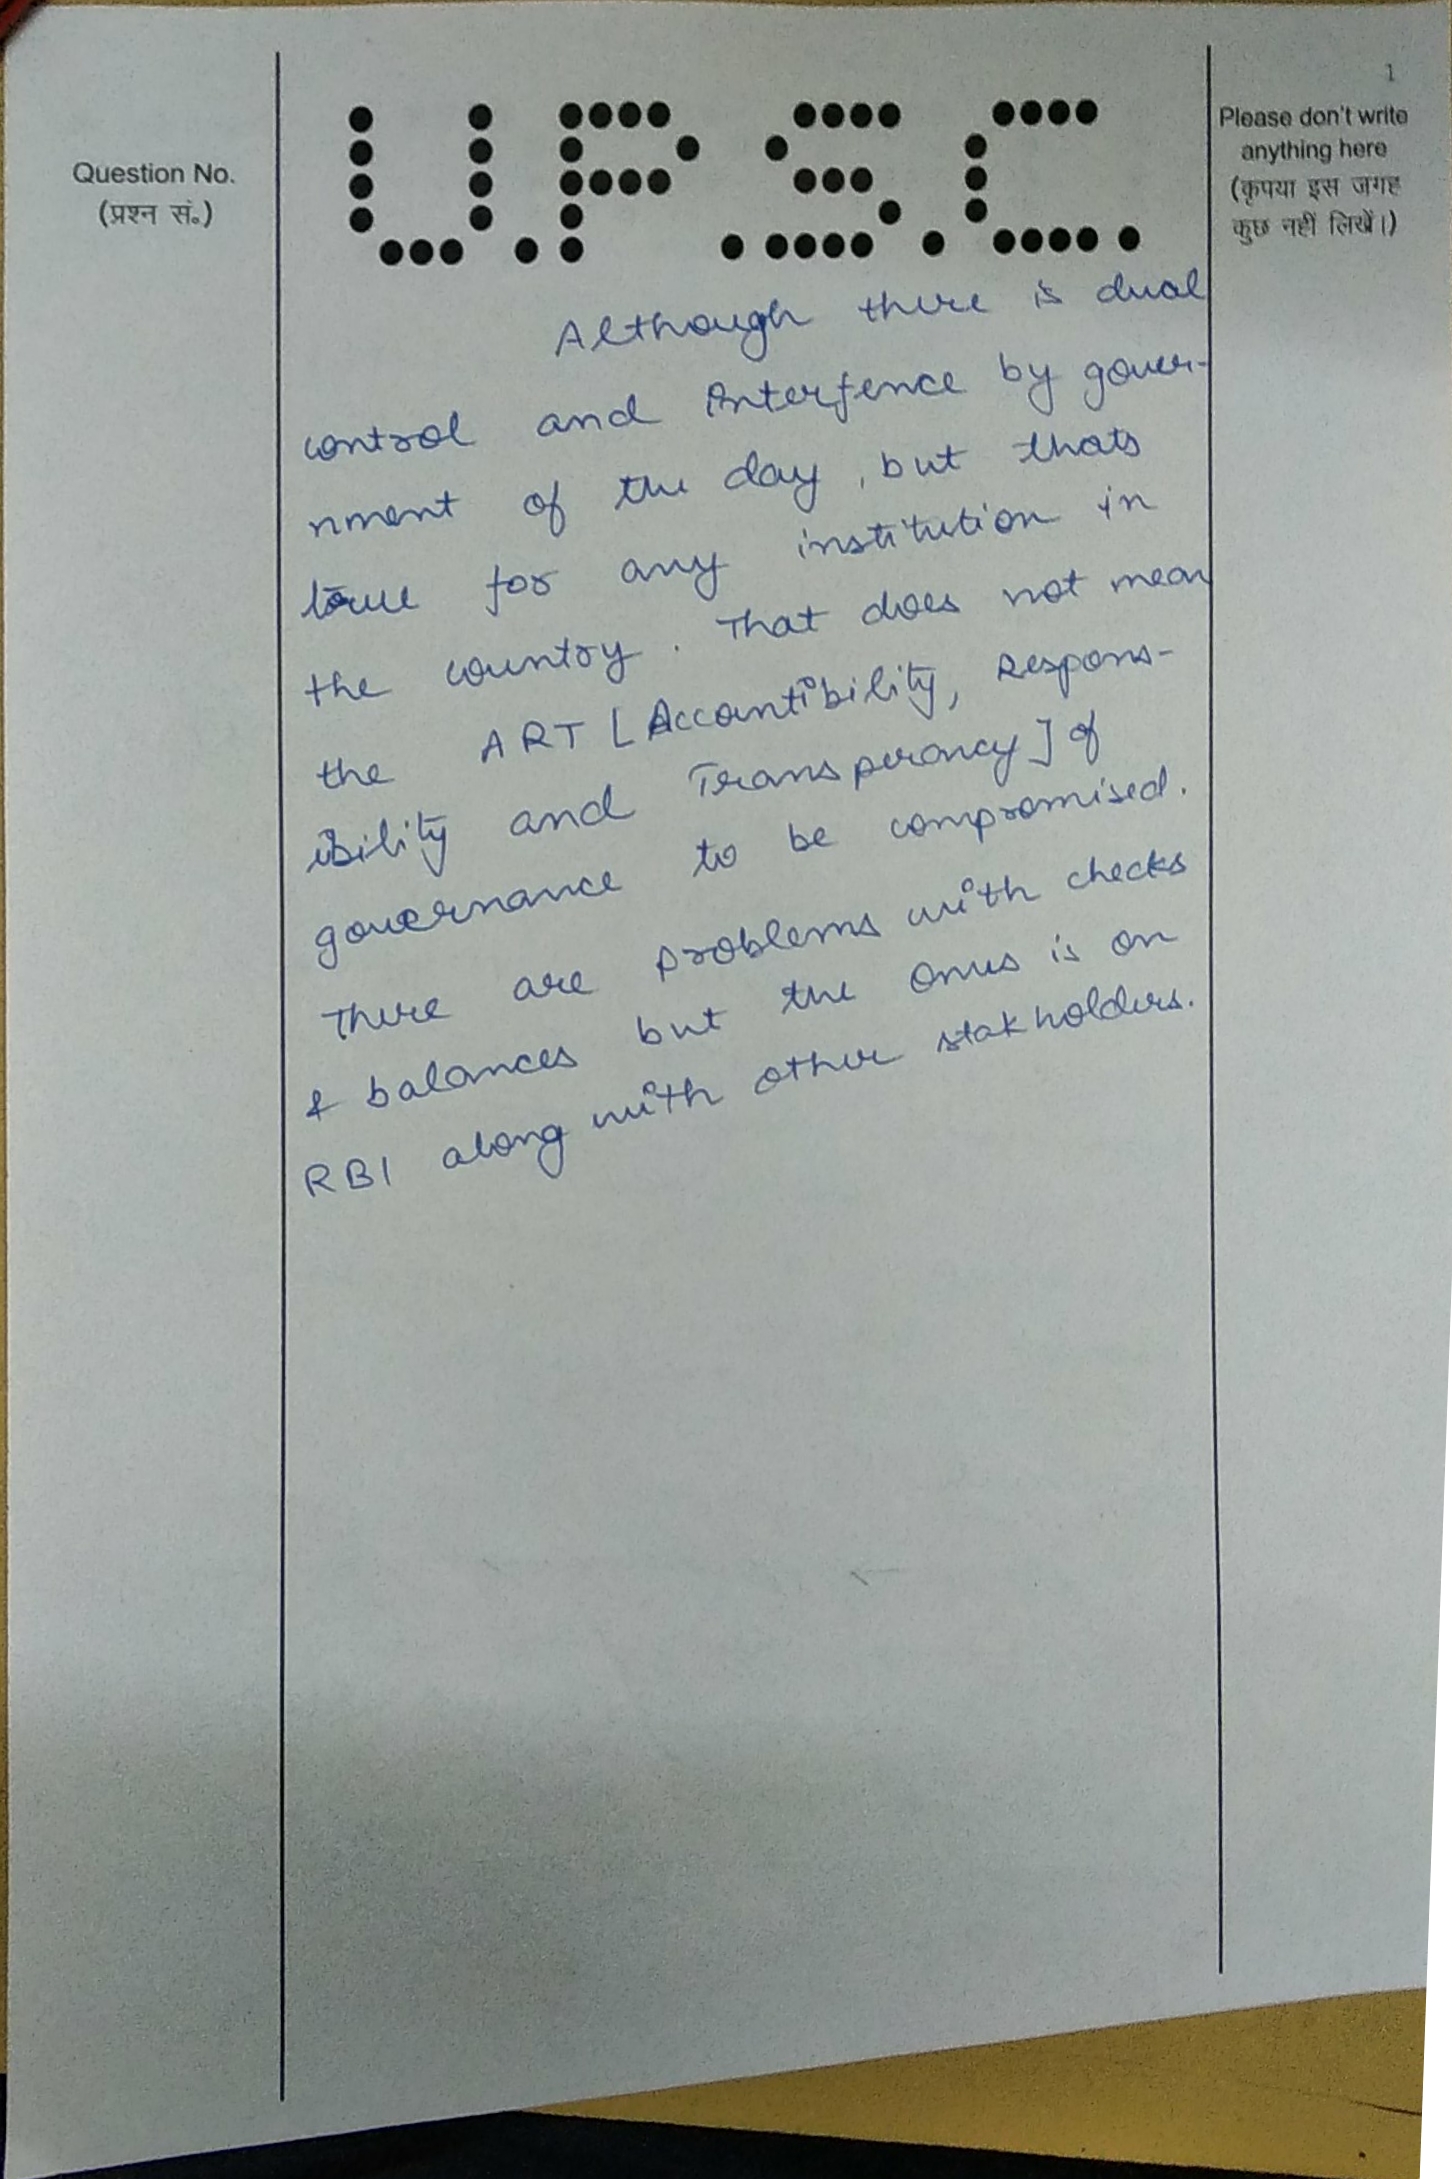 1
Question No.
(प्रश्न सं.)
U.P.S.C.
Please don't write
anything here
(कृपया इस जगह
कुछ नहीं लिखें।)
Although there is dual
control and interfence by gover-
nment of the day, but thats
true for any institution in
the country. That does not mean
the ART [Accountibility, Respons-
ibility and Transperancy] of
governance to be compromised.
There are problems with checks
& balances but the onus is on
RBI along with other stakholders.